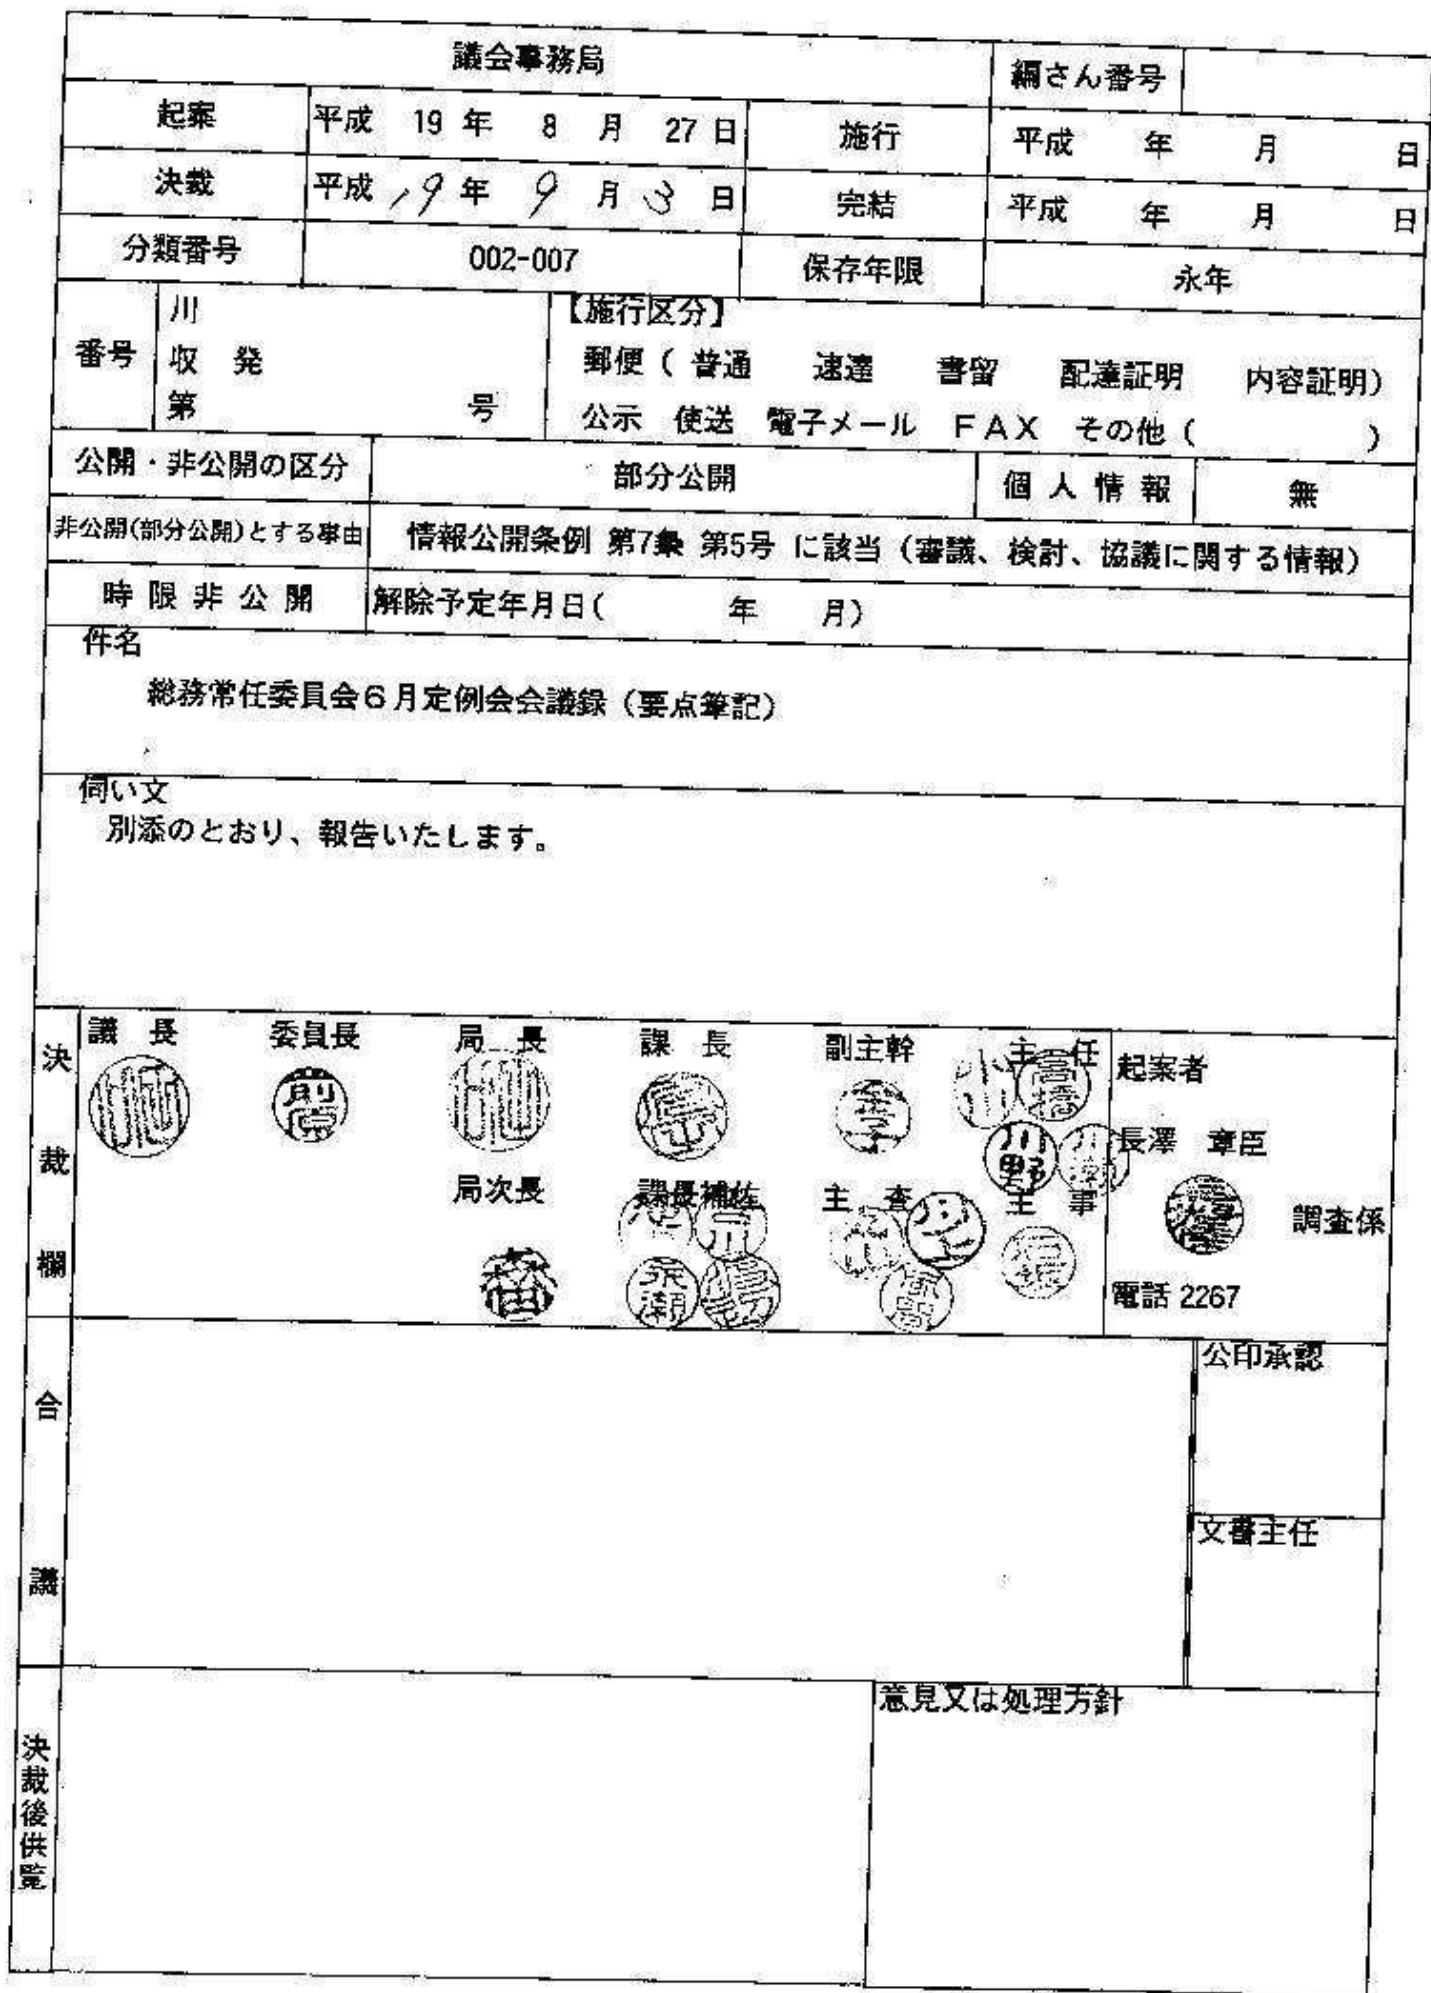 議会事務局 編さん番号
起案 平成 19 年 8 月 27 日 施行 平成 年 月 日
決裁 平成 19 年 9 月 3 日 完結 平成 年 月 日
分類番号 002-007 保存年限 永年
番号
川
収 発
第 号
【施行区分】
郵便（ 普通 速達 書留 配達証明 内容証明）
公示 使送 電子メール FAX その他（ ）
公開・非公開の区分 部分公開 個人情報 無
非公開(部分公開)とする事由 情報公開条例 第7条 第5号 に該当（審議、検討、協議に関する情報）
時限非公開 解除予定年月日( 年 月)
件名
総務常任委員会６月定例会会議録（要点筆記）
伺い文
別添のとおり、報告いたします。
決裁欄
議長 委員長 局長 課長 副主幹 主任 起案者
前原
高橋
川野
長澤 章臣
局次長 課長補佐 主査 主事 調査係
電話 2267
合議
公印承認
文書主任
決裁後供覧
意見又は処理方針